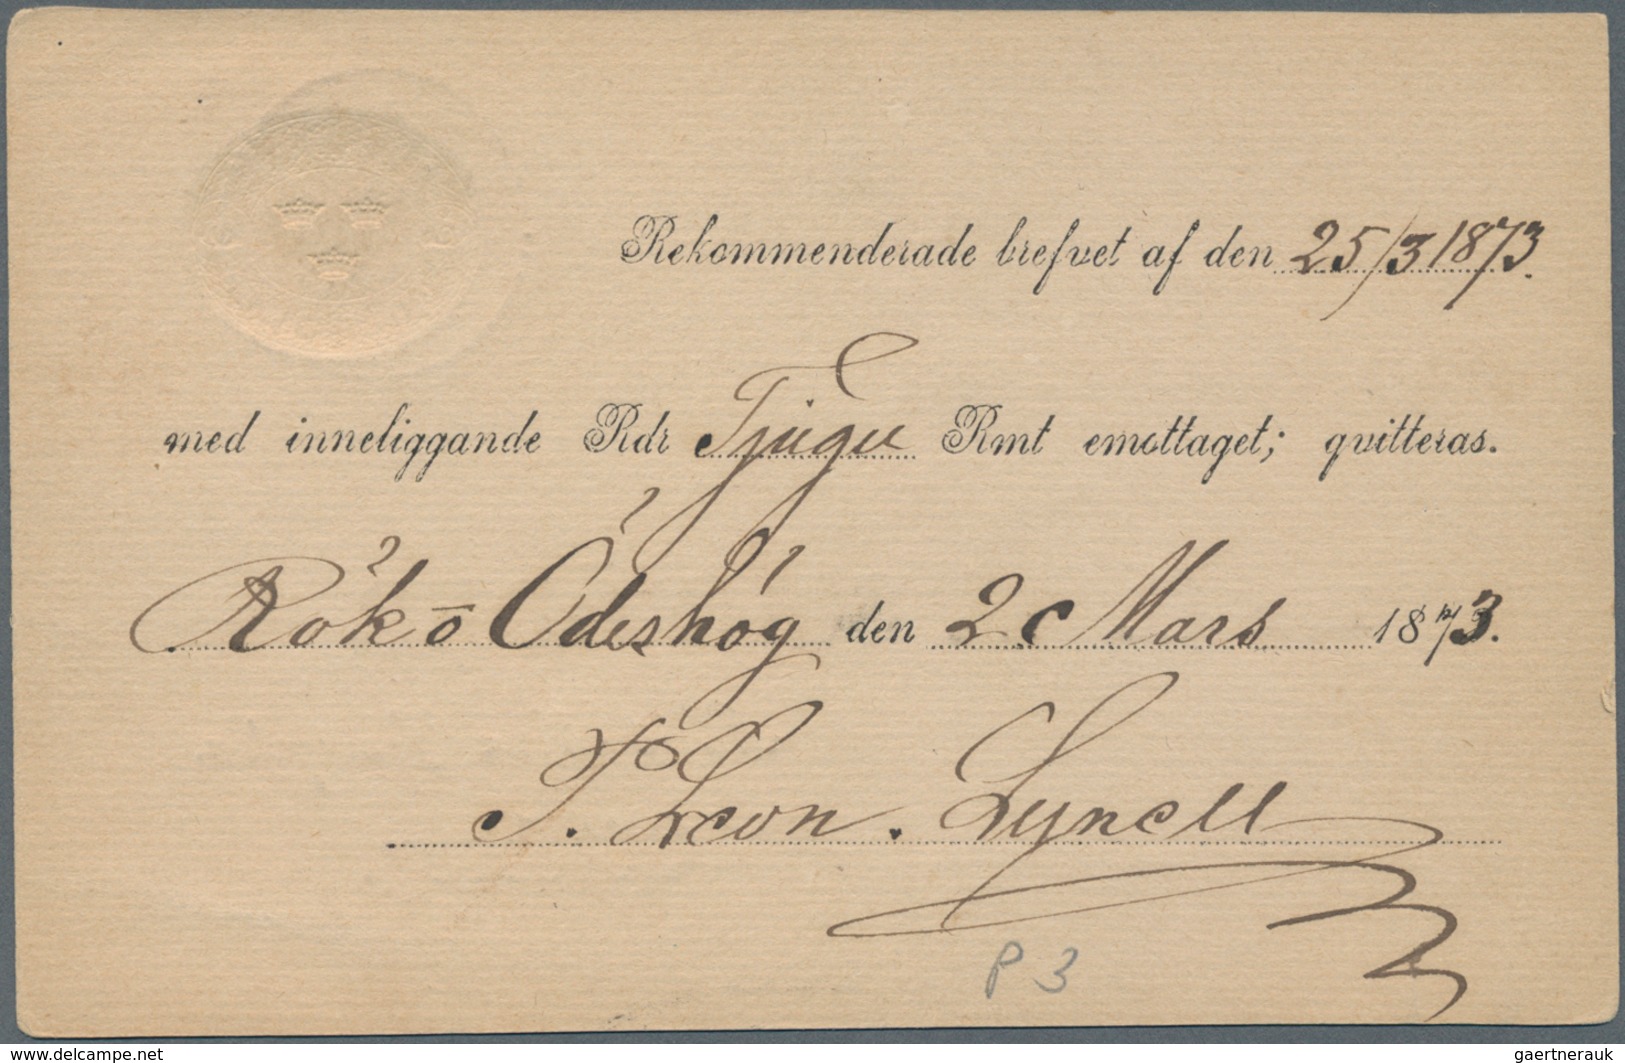 Rekommenderade brefvet af den 25/3 1873.
med inneliggande Rdr Tjugu Rmt emottaget; qvitteras.
Rök o Ödeshög den Mars 1873.
Leon. Lynell
P 3
www.delcampe.net
gaertnerauk